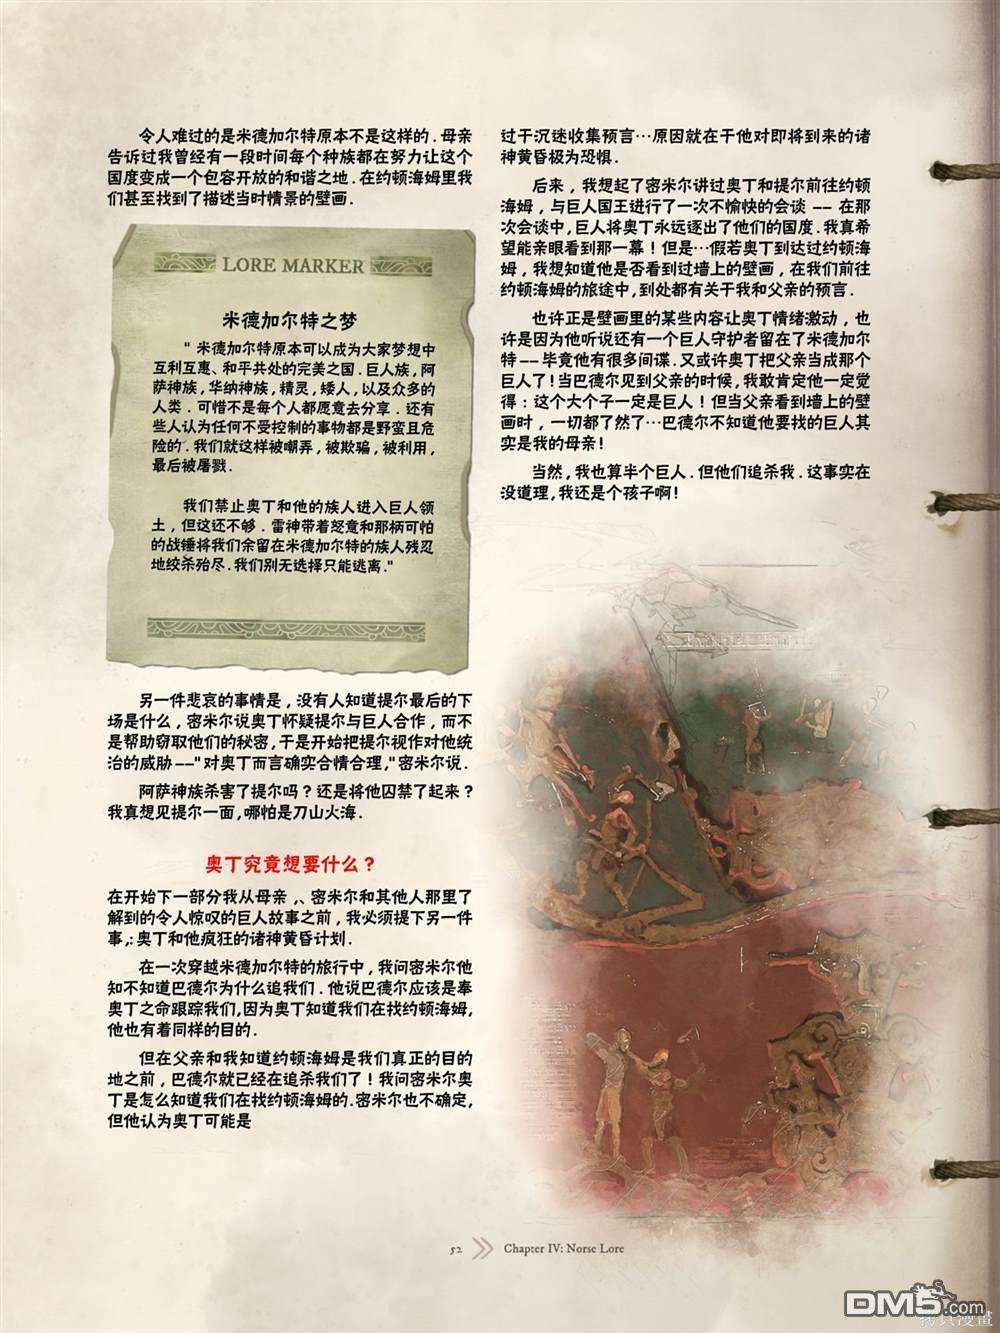 令人难过的是米德加尔特原本不是这样的.母亲
告诉过我曾经有一段时间每个种族都在努力让这个
国度变成一个包容开放的和谐之地.在约顿海姆里我
们甚至找到了描述当时情景的壁画.
LORE MARKER
米德加尔特之梦
"米德加尔特原本可以成为大家梦想中
互利互惠、和平共处的完美之国.巨人族,阿
萨神族,华纳神族,精灵,矮人,以及众多的
人类.可惜不是每个人都愿意去分享.还有
些人认为任何不受控制的事物都是野蛮且危
险的.我们就这样被嘲弄,被欺骗,被利用,
最后被屠戮.
我们禁止奥丁和他的族人进入巨人领
土,但这还不够.雷神带着怒意和那柄可怕
的战锤将我们余留在米德加尔特的族人残忍
地绞杀殆尽.我们别无选择只能逃离."
另一件悲哀的事情是,没有人知道提尔最后的下
场是什么,密米尔说奥丁怀疑提尔与巨人合作,而不
是帮助窃取他们的秘密,于是开始把提尔视作对他统
治的威胁--"对奥丁而言确实合情合理,"密米尔说.
阿萨神族杀害了提尔吗?还是将他囚禁了起来?
我真想见提尔一面,哪怕是刀山火海.
奥丁究竟想要什么?
在开始下一部分我从母亲,、密米尔和其他人那里了
解到的令人惊叹的巨人故事之前,我必须提下另一件
事,:奥丁和他疯狂的诸神黄昏计划.
在一次穿越米德加尔特的旅行中,我问密米尔他
知不知道巴德尔为什么追我们.他说巴德尔应该是奉
奥丁之命跟踪我们,因为奥丁知道我们在找约顿海姆,
他也有着同样的目的.
但在父亲和我知道约顿海姆是我们真正的目的
地之前,巴德尔就已经在追杀我们了!我问密米尔奥
丁是怎么知道我们在找约顿海姆的.密米尔也不确定,
但他认为奥丁可能是
过于沉迷收集预言…原因就在于他对即将到来的诸
神黄昏极为恐惧.
后来,我想起了密米尔讲过奥丁和提尔前往约顿
海姆,与巨人国王进行了一次不愉快的会谈--在那
次会谈中,巨人将奥丁永远逐出了他们的国度.我真希
望能亲眼看到那一幕!但是…假若奥丁到达过约顿海
姆,我想知道他是否看到过墙上的壁画,在我们前往
约顿海姆的旅途中,到处都有关于我和父亲的预言.
也许正是壁画里的某些内容让奥丁情绪激动,也
许是因为他听说还有一个巨人守护者留在了米德加尔
特--毕竟他有很多间谍.又或许奥丁把父亲当成那个
巨人了!当巴德尔见到父亲的时候,我敢肯定他一定觉
得:这个大个子一定是巨人!但当父亲看到墙上的壁
画时,一切都了然了…巴德尔不知道他要找的巨人其
实是我的母亲!
当然,我也算半个巨人.但他们追杀我.这事实在
没道理,我还是个孩子啊!
52 Chapter IV: Norse Lore
DM5.com